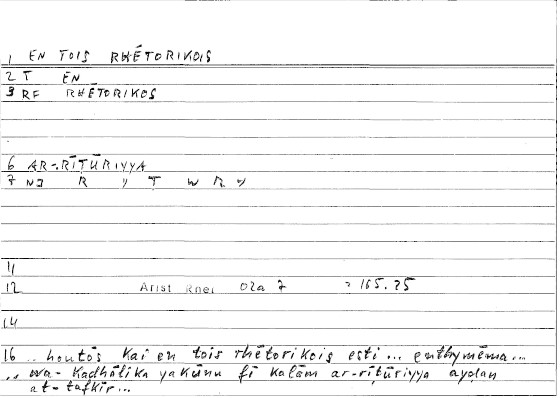 1 EN TOIS RHĒTORIKOIS
2 T EN
3 RF RHĒTORIKOS
6 AR-RĪṬŪRIYYA
7 NJ R Y T W R Y
11
12 Arist Rhet 02a 7 = 165.25
14
16 .. houtōs kai en tois rhētorikois esti ... enthymēma ...
.. wa-kadhālika yakūnu fī kalām ar-rīṭūriyya ayḍan
at-tafkīr ...